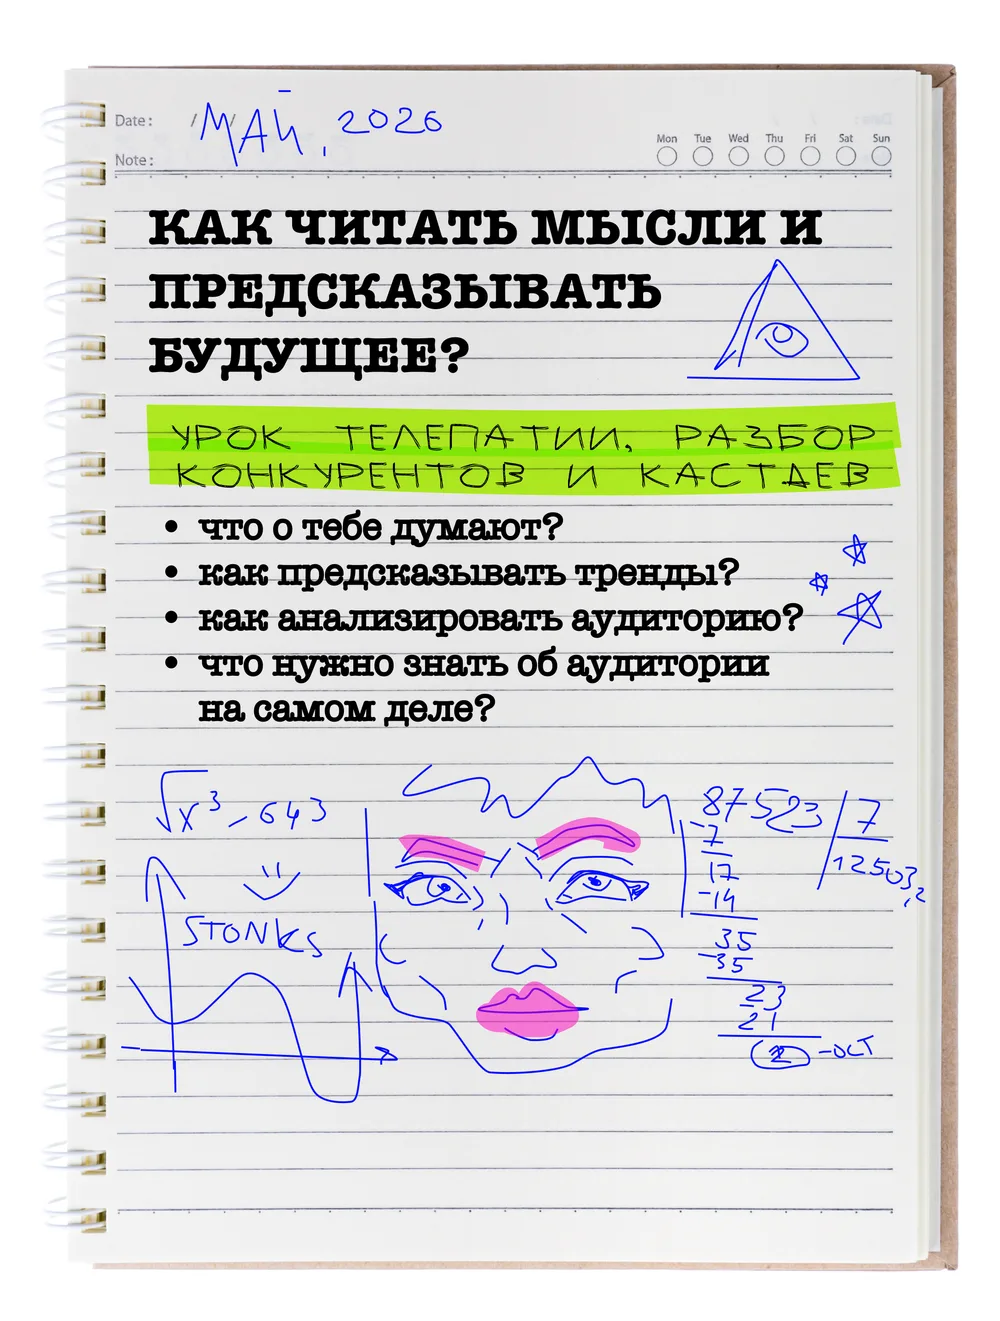 Date: / /
МАЙ, 2026
Note:
Mon Tue Wed Thu Fri Sat Sun
КАК ЧИТАТЬ МЫСЛИ И
ПРЕДСКАЗЫВАТЬ
БУДУЩЕЕ?
УРОК ТЕЛЕПАТИИ, РАЗБОР
КОНКУРЕНТОВ И КАСТДЕВ
• что о тебе думают?
• как предсказывать тренды?
• как анализировать аудиторию?
• что нужно знать об аудитории
на самом деле?
√x³ - 643
STONKS
87523 / 7
-7
12503,2
17
-14
35
-35
23
21
2 - ОСТ